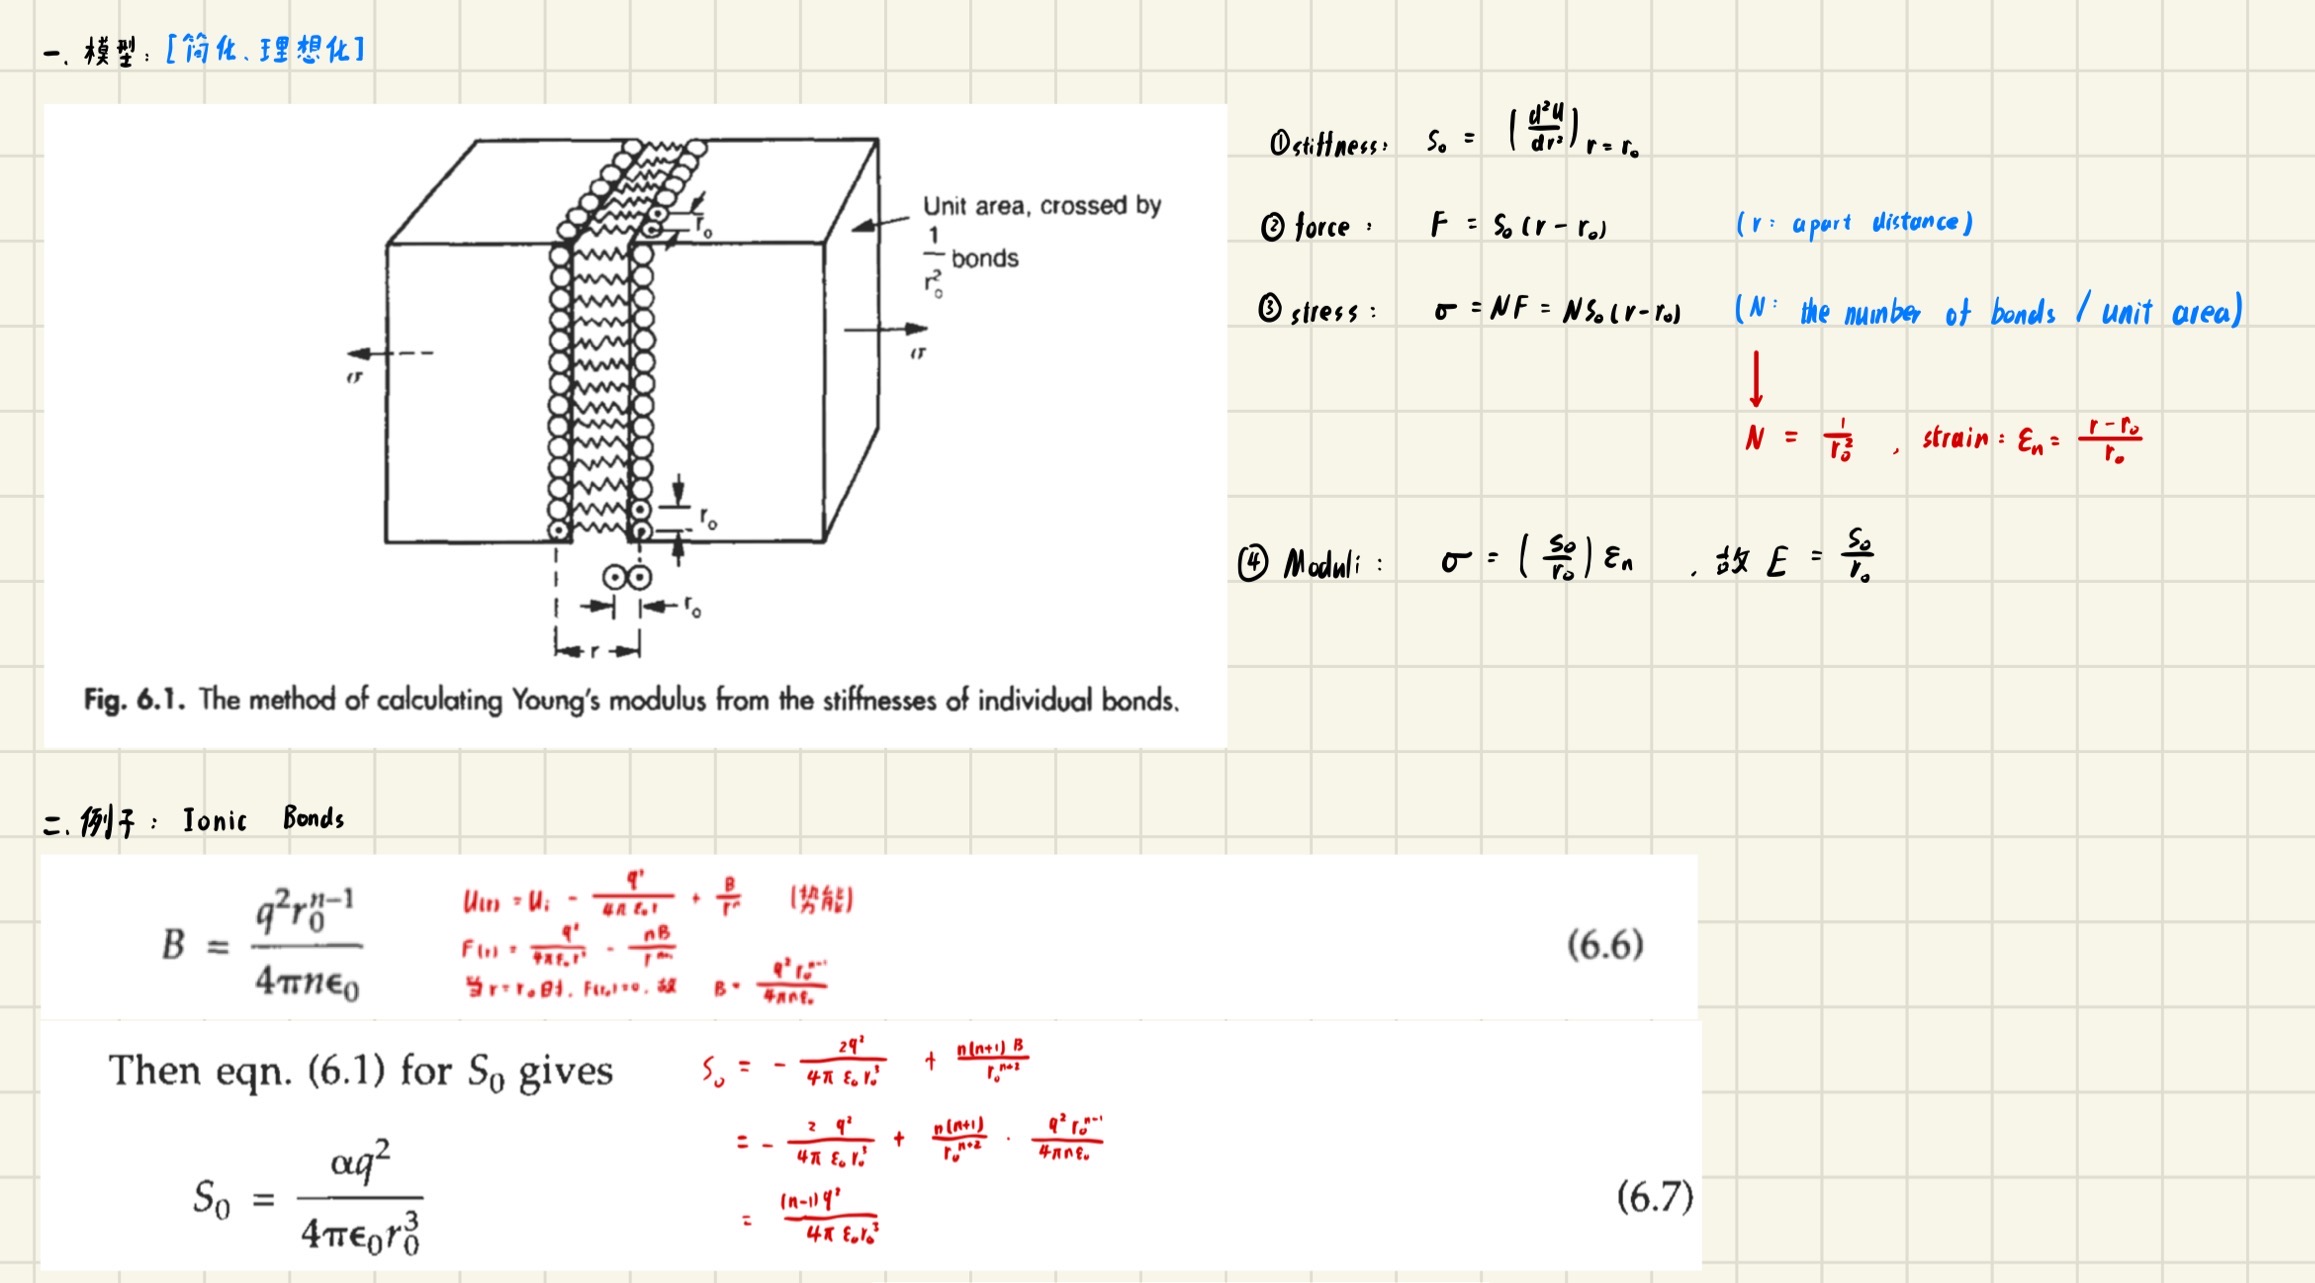 一. 模型：[简化、理想化]
σ
r₀
Unit area, crossed by
1/r₀² bonds
σ
r₀
r₀
r
Fig. 6.1. The method of calculating Young's modulus from the stiffnesses of individual bonds.
① stiffness: S₀ = (d²U/dr²) r = r₀
② force: F = S₀(r − r₀) (r: apart distance)
③ stress: σ = NF = NS₀(r−r₀) (N: the number of bonds / unit area)
↓
N = 1/r₀² , strain: εn = (r−r₀)/r₀
④ Moduli: σ = (S₀/r₀) εn . 故 E = S₀/r₀
二. 例子: Ionic Bonds
B = q²r₀ⁿ⁻¹/4πnϵ₀ (6.6)
U(r) = Ui − q²/4πε₀r + B/rⁿ (势能)
F(r) = q²/4πε₀r² − nB/rⁿ⁺¹
当 r=r₀时, F(r₀)=0, 故 B = q²r₀ⁿ⁻¹/4πnε₀
Then eqn. (6.1) for S₀ gives
S₀ = αq²/4πϵ₀r₀³ (6.7)
S₀ = − 2q²/4πε₀r₀³ + n(n+1)B/r₀ⁿ⁺²
= − 2q²/4πε₀r₀³ + n(n+1)/r₀ⁿ⁺² · q²r₀ⁿ⁻¹/4πnε₀
= (n−1)q²/4πε₀r₀³